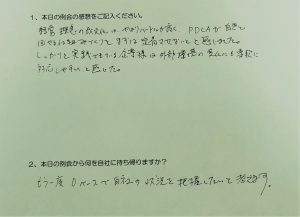 1、本日の例会の感想をご記入ください。
経営理念の成文化は やはりハードルが高く、PDCAが自然と
回せる仕組みづくりを まずは定着させないと と感じました。
しっかりと実践できている企業様は外部環境の変化にも柔軟に
対応しやすいと感じた。
2、本日の例会から何を自社に持ち帰りますか？
もう一度 0ベースで自社の状況を把握したいと考えます。